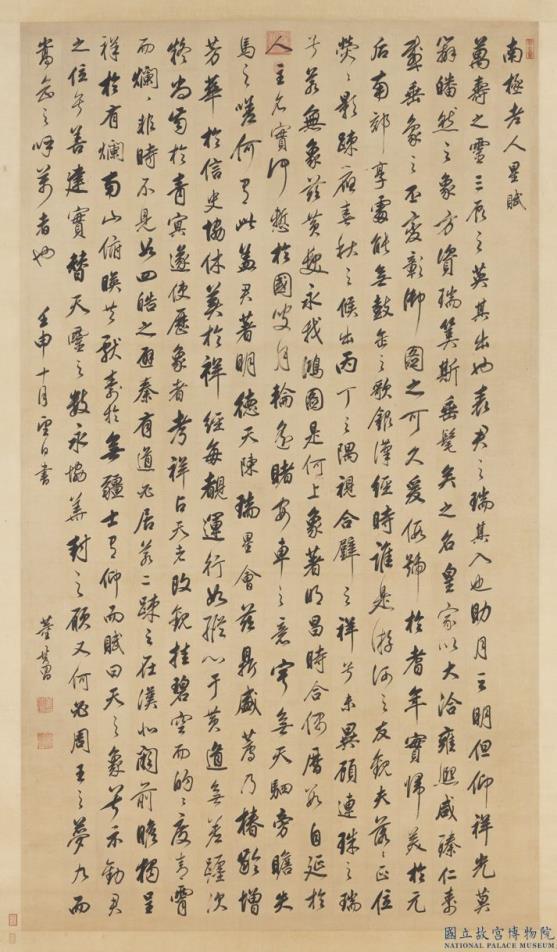 南極老人星賦
萬壽之靈三辰之英其出也表君之瑞其入也助月之明但仰祥光莫
辭皤然之象方資瑞筭斯垂髦矣之名皇家以大洽雍熙咸臻仁壽
感垂象之丕變彰御圖之可久爰傒號於耆年實歸美於元
后南郊享處能無鼓缶之歌銀漢經時誰是游河之友觀夫落落正位
熒熒影疎夜春秋之候出丙丁之隅視合璧之祥兮未異顧連珠之瑞
兮若無象茲黃髮永我鴻圖是何上象著明昌時合偶曆數自延於
人主名實仰憖於國叟月輪處睹安車之意宇無天駟旁瞻失
馬之嗟何有此蓋君著明德天陳瑞星會茲鼎盛薦乃椿齡增
芳華於信史協休美於祥經每覩運行如縱心于黃道無差躔次
終當蜀於青冥遂使歷象者考祥占天者啟觀挂碧空而的的度青霄
而爛爛非時不見如四皓之避秦有道必居若二疎之在漢北闕前瞻獨呈
祥於有爛南山俯映共獻壽於無疆士有仰而賦曰天之象兮示勸君
之位兮善建實贊天靈之數永協華封之願又何必周王之夢九而
嵩岳之呼萬者也 壬申十月望日書 董其昌
國立故宮博物院
NATIONAL PALACE MUSEUM